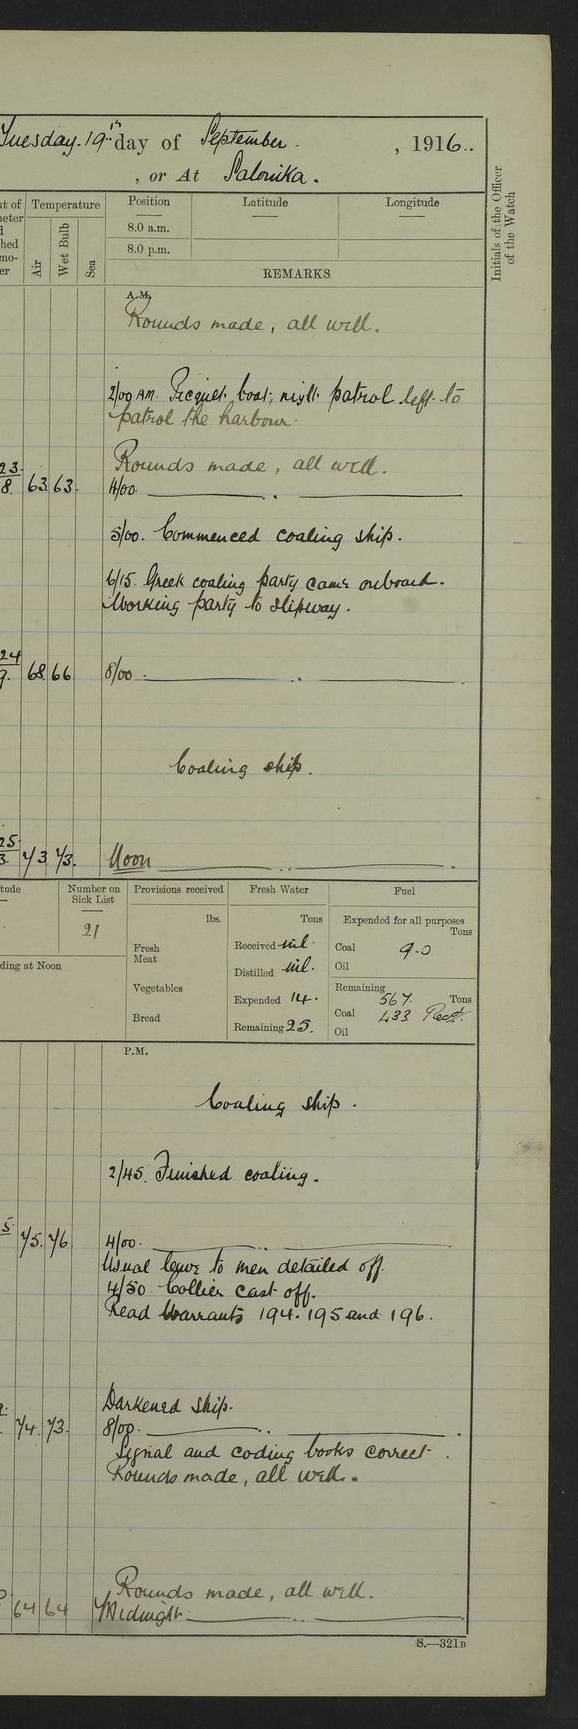 Tuesday. 19th day of September. , 1916..
, or At Salonika.
Temperature
Position
Latitude
Longitude
Initials of the Officer
of the Watch
Air
Wet Bulb
Sea
8.0 a.m.
8.0 p.m.
REMARKS
A.M.
Rounds made, all well.
2/00 AM. Picquet boat, night patrol left to
patrol the harbour.
Rounds made, all well.
63 63. 4/00
5/00. Commenced coaling ship.
6/15. Greek coaling party came onboard.
Working party to slipway.
68. 66 8/00
Coaling ship.
73 73. Noon
Number on
Sick List
21
Provisions received
lbs.
Fresh
Meat
Vegetables
Bread
Fresh Water
Tons
Received nil.
Distilled nil.
Expended 14.
Remaining 25.
Fuel
Expended for all purposes
Tons
Coal 9.0
Oil
Remaining
567. Tons
Coal 433 Recd.
Oil
ding at Noon
P.M.
Coaling ship.
2/45. Finished coaling.
75. 76 4/00.
Usual leave to men detailed off.
4/50. Collier cast off.
Read Warrants 194. 195 and 196.
Darkened ship.
74. 73. 8/00.
Signal and coding books correct.
Rounds made, all well.
Rounds made, all well.
64 64 Midnight.
S.—321B